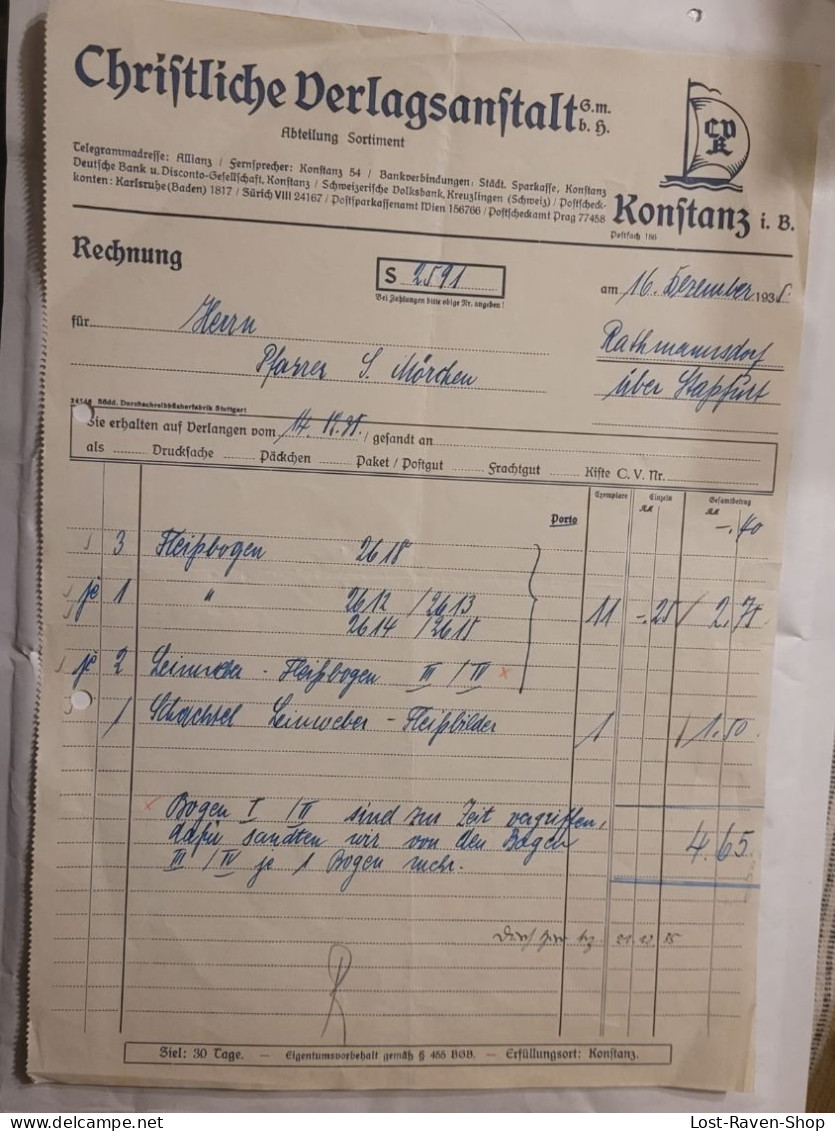 Christliche Verlagsanstalt G.m.b.H.
Abteilung Sortiment
Telegrammadresse: Allianz / Fernsprecher: Konstanz 54 / Bankverbindungen: Städt. Sparkasse, Konstanz
Deutsche Bank u. Disconto-Gesellschaft, Konstanz / Schweizerische Volksbank, Kreuzlingen (Schweiz) / Postscheck-
konten: Karlsruhe (Baden) 1817 / Zürich VIII 24167 / Postsparkassenamt Wien 156766 / Postscheckamt Prag 77458
CVK
Konstanz i. B.
Postfach 186
Rechnung
S 2591
Bei Zahlungen bitte obige Nr. angeben!
am 16. Dezember 1935
für Herrn
Pfarrer S. Mörchen
Rathmannsdorf
über Stassfurt
24146 Südd. Durchschreibbücherfabrik Stuttgart
Sie erhalten auf Verlangen vom 14. 12. 35. / gesandt an
als Drucksache Päckchen Paket / Postgut Frachtgut Kiste C. V. Nr.
Exemplare Einzeln Gesamtbetrag
RM RM
Porto -.40
3 Fleißbogen 2618
je 1 " 2612 / 2613 11 -.25 / 2.75
2614 / 2615
je 2 Leinweber - Fleißbogen III / IV x
1 Schachtel Leinweber - Fleißbilder 1 / 1.50
x Bogen I / II sind zur Zeit vergriffen,
dafür sandten wir von den Bogen
III / IV je 1 Bogen mehr.
4.65
21. 12. 35
Ziel: 30 Tage. — Eigentumsvorbehalt gemäß § 455 BGB. — Erfüllungsort: Konstanz.
Lost-Raven-Shop